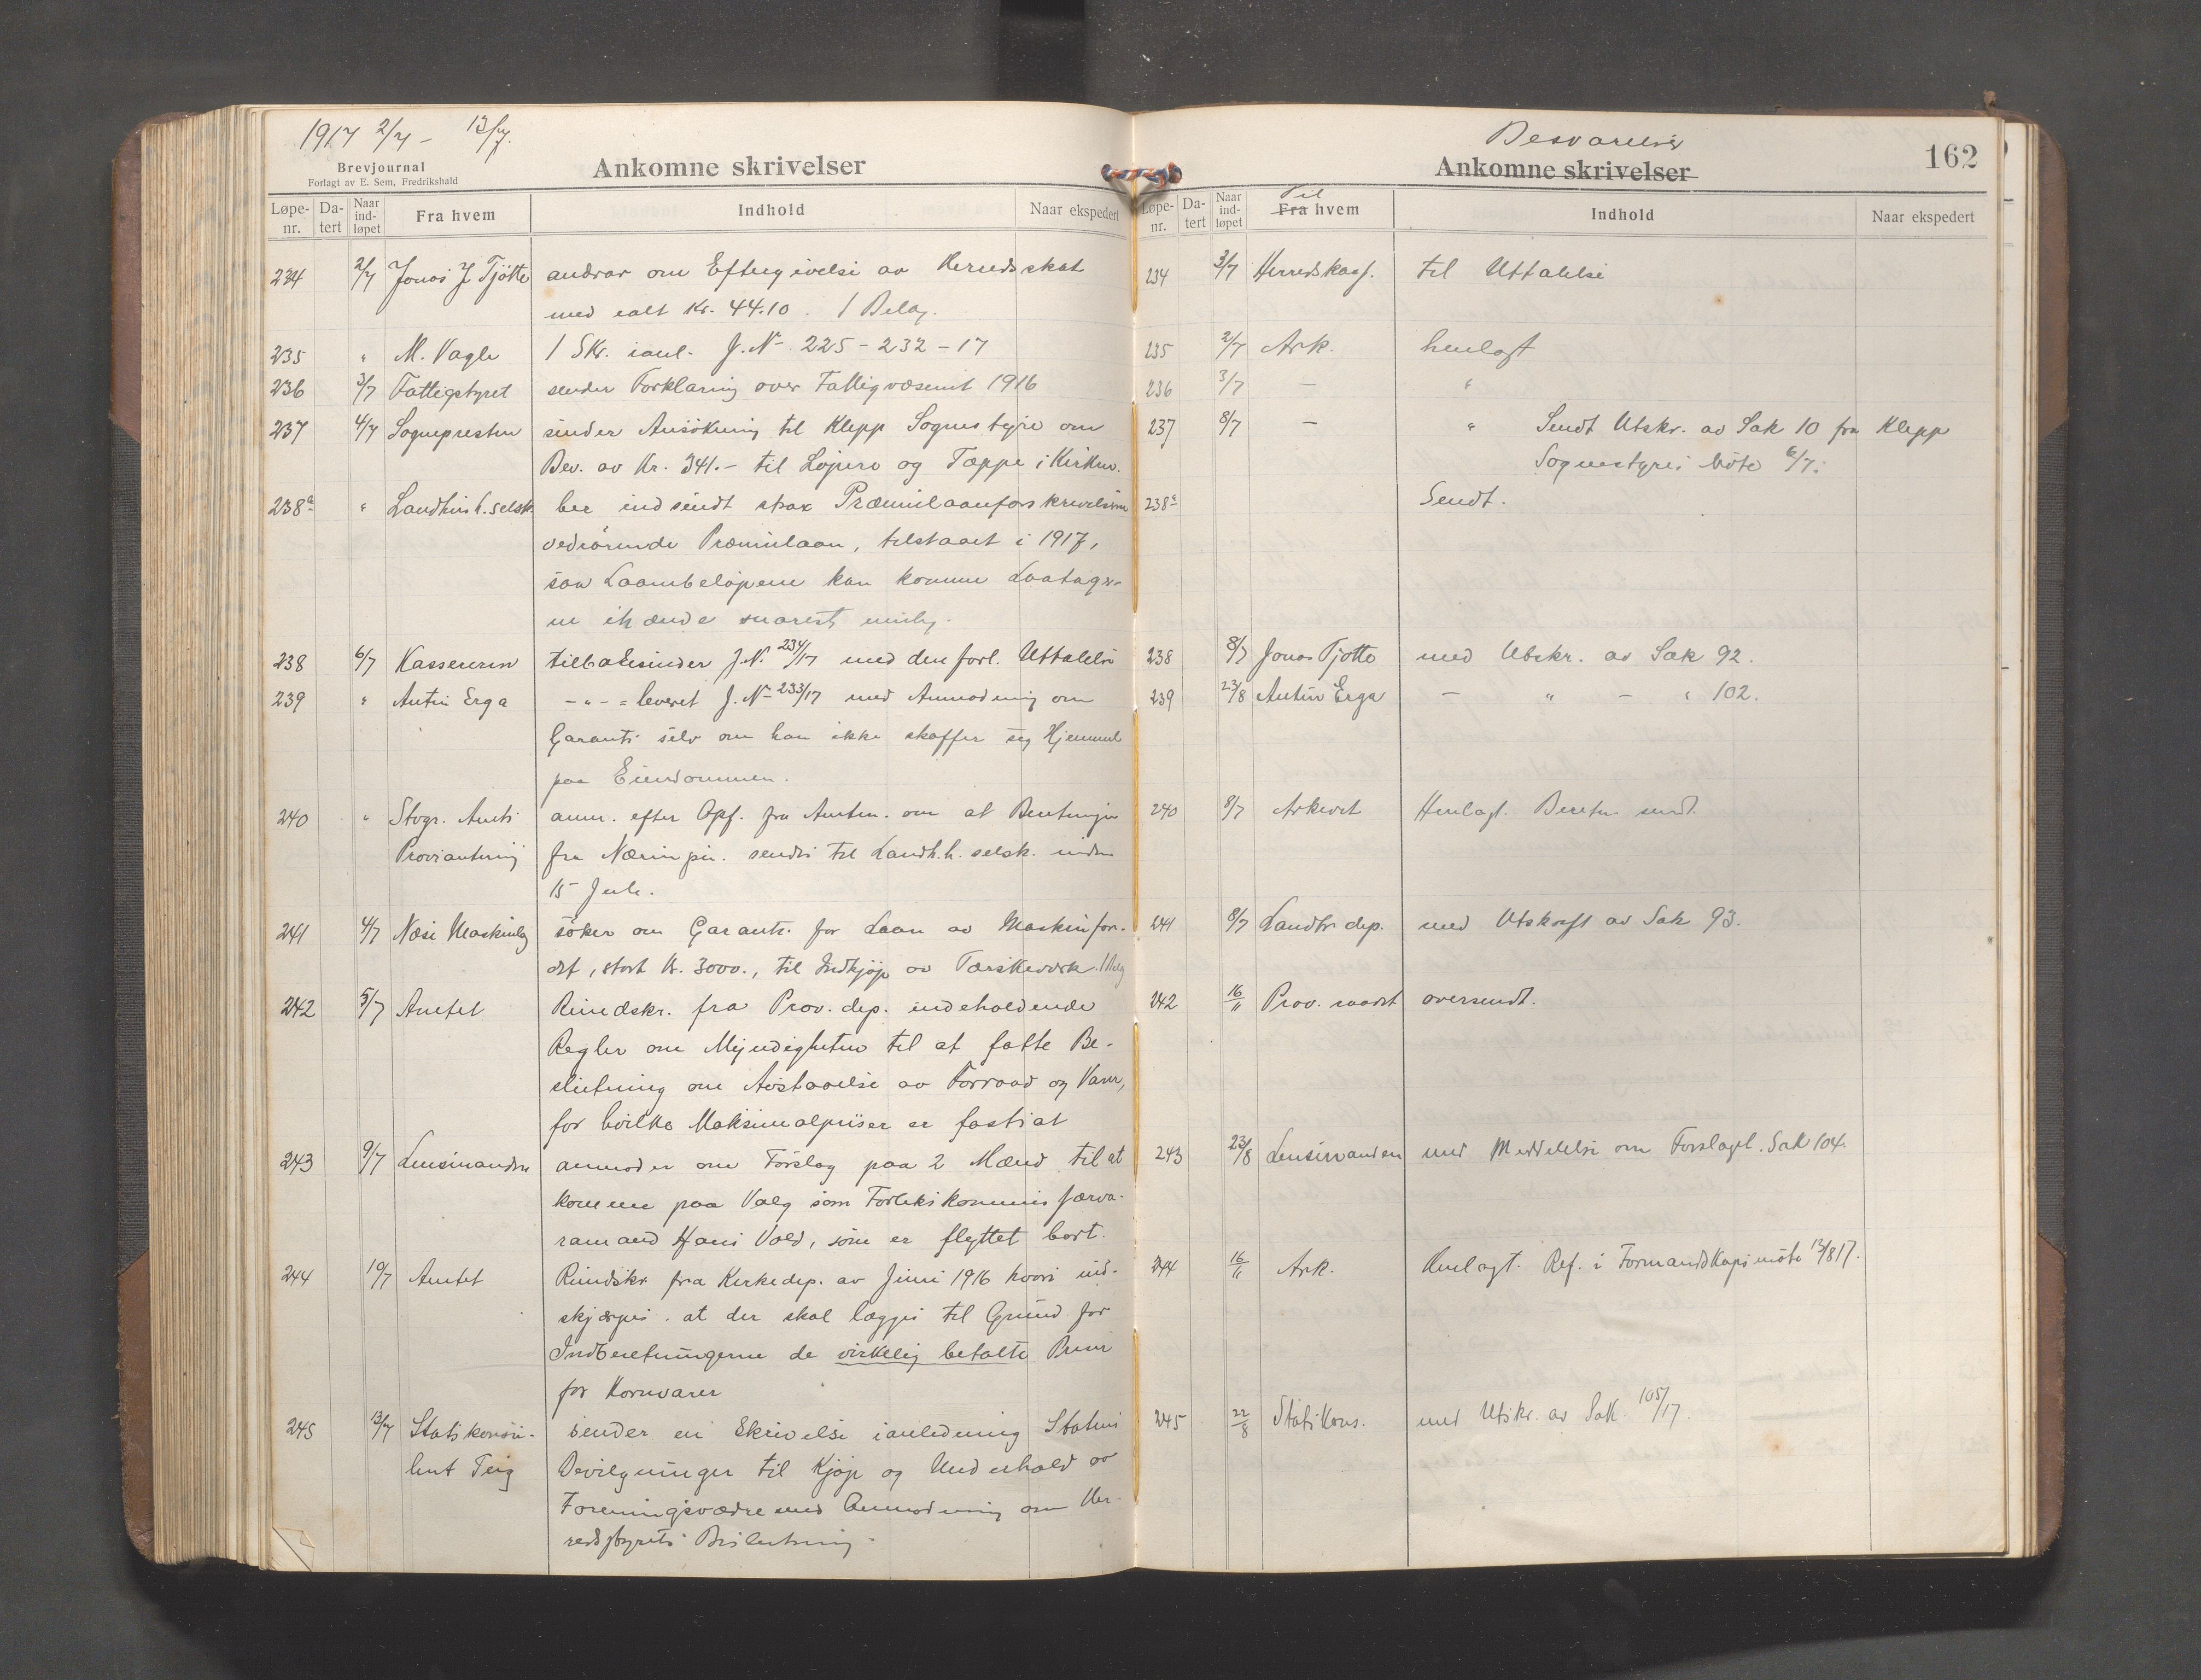 1917 2/7 - 13/7.
Brevjournal
Forlagt av E. Sem, Fredrikshald
Ankomne skrivelser
Løpe-nr. Da-tert Naar ind-løpet Fra hvem Indhold Naar ekspedert
234 2/7 Jonas J Tjötta andrar om Eftergivelse av Herredsskat
med ialt Kr. 44.10. 1 Belag.
235 " M. Vagle 1 Skr. ianl. J. N= 225-232-17
236 3/7 Fattigstyret sender Forklaring over Fattigvæsenet 1916
237 4/7 Sognepresten sender Ansökning til Klepp Sognestyre om
Bev. av Kr. 341.- til Löpere og Tæppe i Kirken.
238a " Landhush. selsk. ber indsendt strax Præmielaanforskrivelserne
vedrörende Præmielaan, tilstaaet i 1917,
saa Laanbelöpene kan komme Laatager-
ne ihænde snarest mulig.
238 6/7 Kassereren tilbakesender J.N. 234/17 med den forl. Uttalelse
239 " Antin Erga -"-= leveret J. N= 233/17 med Anmodning om
Garanti selv om han ikke skaffer seg Hjemmel
paa Eiendommen.
240 " Stvgr. Amts anm. efter Opf. fra Amtm. om at Beretningen
Proviantering fra Næringsn. sendes til Landh.h. selsk. inden
15 Juli.
241 4/7 Næse Maskinlag söker om Garanti for Laan av Maskinfon-
det, stort Kr. 3000., til Indkjöp av Tærskeverk.
242 5/7 Amtet Rundskr. fra Prov. dep. indeholdende
Regler om Myndigheten til at fatte Be-
slutning om Avstaaelse av Forraad og Varer,
for hvilke Maksimalpriser er fastsat
243 9/7 Lensmanden anmoder om Forslag paa 2 Mænd til at
komme paa Valg som Forlikskommissærva-
ramand Hans Vold, som er flyttet bort.
244 10/7 Amtet Rundskr fra Kirkedep. av Juni 1916 hvori ind-
skjærpes. at der skal lægges til Grund for
Indberetningerne de virkelig betalte Priser
for Kornvarer
245 13/7 Statskonsu- sender en Skrivelse ianledning Statens
lent Teig Bevilgninger til Kjöp og Underhold av
Foreningsvædre med Anmodning om Her-
redsstyrets Beslutning.
Besvarelser
Ankomne skrivelser
162
Løpe-nr. Da-tert Naar ind-løpet Til Fra hvem Indhold Naar ekspedert
234 3/7 Herredskass. til Uttalelse
235 2/7 Ark. henlagt
236 3/7 - "
237 8/7 - " Sendt Utskr. av Sak 10 fra Klepp
Sognestyres Möte 6/7.
238a Sendt.
238 8/7 Jonas Tjotta med Utskr. av Sak 92.
239 23/8 Antin Erga - " - " 102.
240 8/7 Arkivet Henlagt. Beretn. sendt.
241 8/7 Landbr. dep. med Utskrift av Sak 93.
242 16/11 Prov. raadet oversendt.
243 23/8 Lensmanden med Meddelelse om Forslaget. Sak 104.
244 16/11 Ark. Henlagt. Ref. i Formandskapsmöte 13/8 17.
245 22/8 Statskons. med Utskr. av Sak. 105/17.